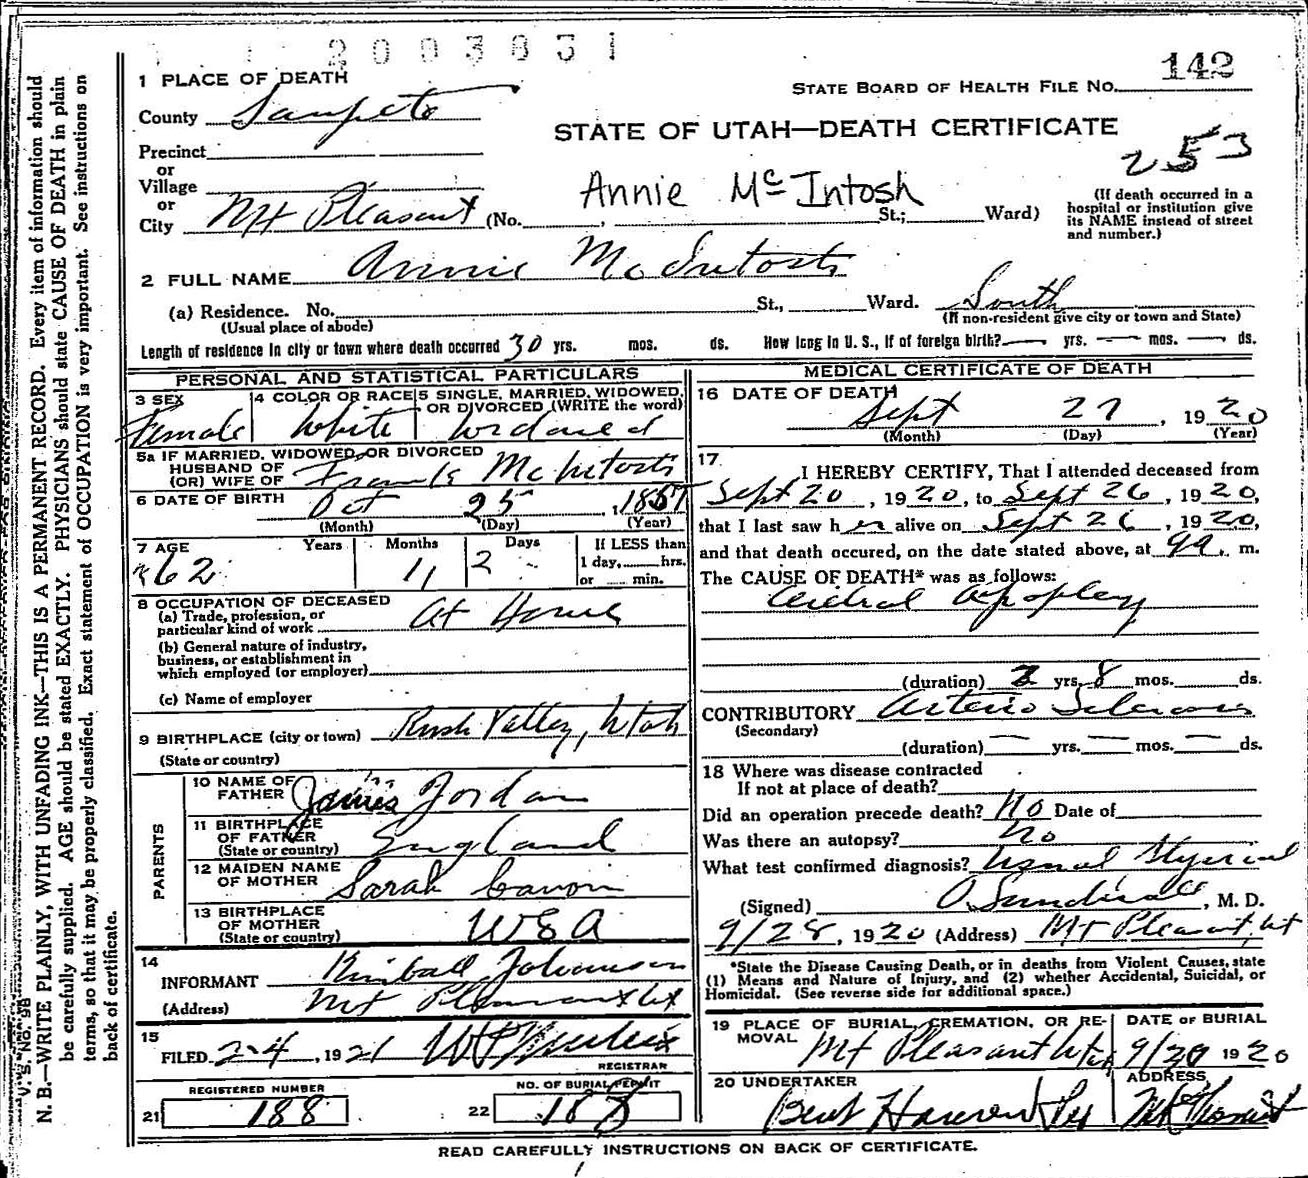 2003831
142
1 PLACE OF DEATH
STATE BOARD OF HEALTH FILE No.
County Sanpete
STATE OF UTAH—DEATH CERTIFICATE
253
Precinct
or
Village
or
City Mt Pleasant (No. , St.; Ward)
Annie McIntosh
(If death occurred in a
hospital or institution give
its NAME instead of street
and number.)
2 FULL NAME Annie McIntosh
(a) Residence. No. St., Ward. South
(Usual place of abode)
(If non-resident give city or town and State)
Length of residence in city or town where death occurred 30 yrs. mos. ds. How long in U. S., if of foreign birth? yrs. mos. ds.
PERSONAL AND STATISTICAL PARTICULARS
3 SEX
Female
4 COLOR OR RACE
White
5 SINGLE, MARRIED, WIDOWED,
OR DIVORCED (WRITE the word)
Widowed
5a IF MARRIED, WIDOWED, OR DIVORCED
HUSBAND OF
(OR) WIFE OF Frank McIntosh
6 DATE OF BIRTH Oct 25, 1857
(Month) (Day) (Year)
7 AGE Years Months Days If LESS than
62 11 2 1 day, hrs.
or min.
8 OCCUPATION OF DECEASED
(a) Trade, profession, or
particular kind of work At Home
(b) General nature of industry,
business, or establishment in
which employed (or employer)
(c) Name of employer
9 BIRTHPLACE (city or town) Rush Valley, Utah
(State or country)
PARENTS
10 NAME OF
FATHER James Jordan
11 BIRTHPLACE
OF FATHER
(State or country) England
12 MAIDEN NAME
OF MOTHER Sarah
13 BIRTHPLACE
OF MOTHER
(State or country) USA
14
INFORMANT Kimball Johanson
(Address) Mt Pleasant Ut
15
FILED 2-4, 1921
REGISTRAR
REGISTERED NUMBER
21 188
NO. OF BURIAL PERMIT
22 188
MEDICAL CERTIFICATE OF DEATH
16 DATE OF DEATH
Sept 27, 1920
(Month) (Day) (Year)
17
I HEREBY CERTIFY, That I attended deceased from
Sept 20, 1920, to Sept 26, 1920,
that I last saw her alive on Sept 26, 1920,
and that death occured, on the date stated above, at 9 a. m.
The CAUSE OF DEATH* was as follows:
Cerebral Apoplexy
(duration) yrs. 8 mos. ds.
CONTRIBUTORY Arterio Sclerosis
(Secondary)
(duration) — yrs. — mos. — ds.
18 Where was disease contracted
If not at place of death?
Did an operation precede death? No Date of
Was there an autopsy? No
What test confirmed diagnosis? Usual
(Signed) O. Sundwall, M. D.
9/28, 1920 (Address) Mt Pleasant, Ut
*State the Disease Causing Death, or in deaths from Violent Causes, state
(1) Means and Nature of Injury, and (2) whether Accidental, Suicidal, or
Homicidal. (See reverse side for additional space.)
19 PLACE OF BURIAL, CREMATION, OR RE-
MOVAL Mt Pleasant Utah
DATE OF BURIAL
9/29 1920
20 UNDERTAKER
ADDRESS
Mt Pleasant
READ CAREFULLY INSTRUCTIONS ON BACK OF CERTIFICATE.
V. S. No. 98
N. B.—WRITE PLAINLY, WITH UNFADING INK—THIS IS A PERMANENT RECORD. Every item of information should
be carefully supplied. AGE should be stated EXACTLY. PHYSICIANS should state CAUSE OF DEATH in plain
terms, so that it may be properly classified. Exact statement of OCCUPATION is very important. See instructions on
back of certificate.